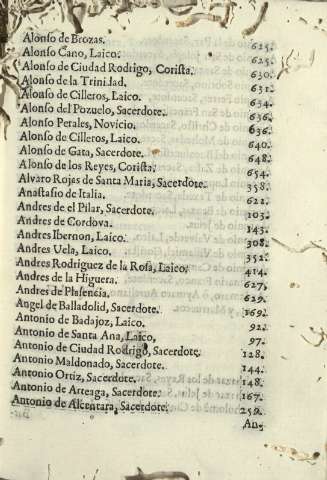 Alonso de Brozas. 625.
Alonso Cano, Laico. 625.
Alonso de Ciudad Rodrigo, Corista. 630.
Alonso de la Trinidad. 631.
Alonso de Cilleros, Laico. 634.
Alonso del Pozuelo, Sacerdote. 636.
Alonso Perales, Novicio. 636.
Alonso de Cilleros, Laico. 640.
Alonso de Gata, Sacerdote. 648.
Alonso de los Reyes, Corista. 654.
Alvaro Rojas de Santa Maria, Sacerdote. 358.
Anastasio de Italia. 622.
Andres de el Pilar, Sacerdote. 103.
Andres de Cordova. 143.
Andres Ibernon, Laico. 308.
Andres Uela, Laico. 352.
Andres Rodriguez de la Rosa, Laico. 414.
Andres de la Higuera. 627,
Andres de Plasencia. 629.
Angel de Balladolid, Sacerdote. 169.
Antonio de Badajoz, Laico. 92.
Antonio de Santa Ana, Laico, 97.
Antonio de Ciudad Rodrigo, Sacerdote. 128.
Antonio Maldonado, Sacerdote. 144.
Antonio Ortiz, Sacerdote. 148.
Antonio de Arteaga, Sacerdote. 167.
Antonio de Alcentara, Sacerdote. 259.
An-